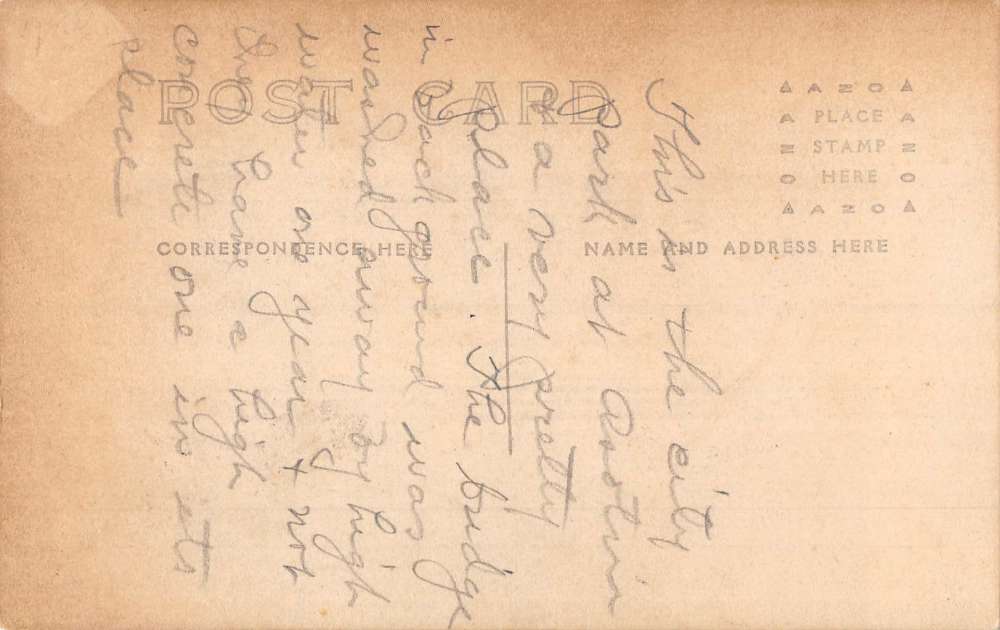 POST CARD
CORRESPONDENCE HERE
NAME AND ADDRESS HERE
AZO
PLACE
STAMP
HERE
AZO
This is the city
Park at Austin
a very pretty
place. The bridge
in back ground was
washed away by high
water one year +
have a high
concrete one in its
place